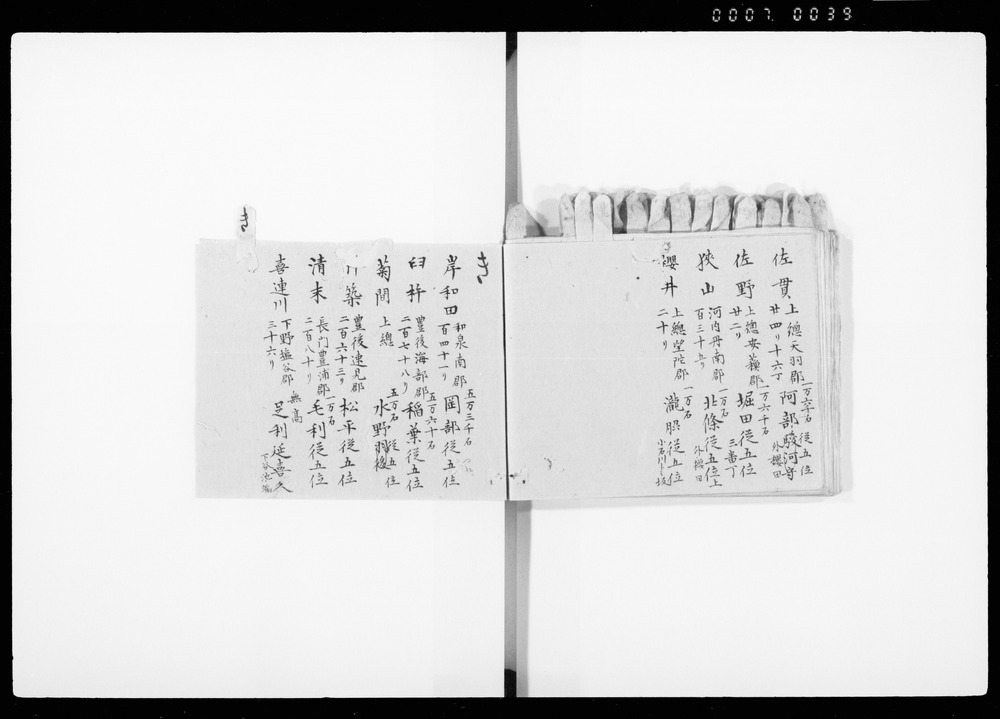 0007 0039
佐貫 上總天羽郡 一万六千石 従五位
廿四リ十六丁 阿部駿河守 外櫻田
佐野 上總安蘓郡 一万六千石
廿二リ 堀田従五位 三番丁
狭山 河内丹南郡 一万石
百三十五リ 北條従五位上 外櫻田
櫻井 上總望陀郡 一万石
二十リ 瀧脇従五位
き
岸和田 和泉南郡 五万三千石
百四十一リ 岡部従五位
臼杵 豊後海部郡 五万六十石
二百七十八リ 稲葉従五位
菊間 上總 五万石 従五位
水野羽後
築 豊後速見郡
二百六十三リ 松平従五位
清末 長門豊浦郡 一万石
二百八十リ 毛利従五位
喜連川 下野塩谷郡 無高
三十六リ 足利延喜久
き